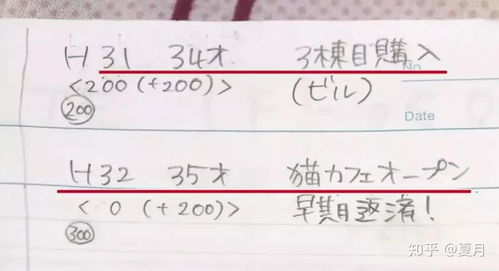 H31 34才 3棟目購入
No.
<200(+200)> (ビル)
200
Date
H32 35才 猫カフェオープン
< 0 (+200)> 早期返済!
300
知乎 @夏月